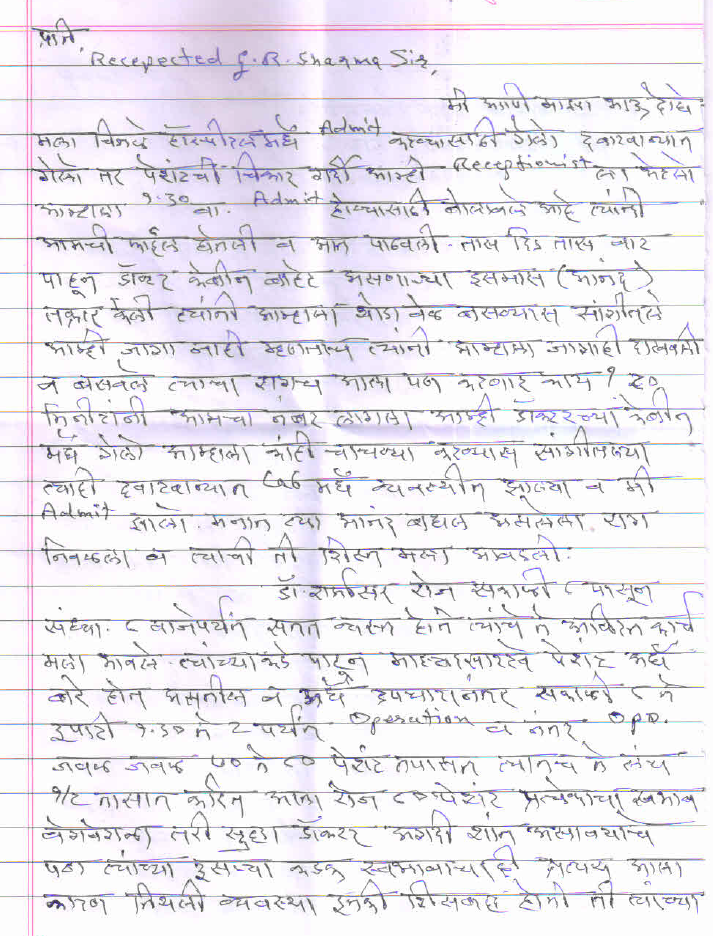 प्रति,
Recepected G.R. Sharma Sir,
मी आणि माझा भाऊ दोघे
मला चिमळे हॉस्पीटलमधे Admit करण्यासाठी गेलो दवाखान्यात
गेलो तर पेशंटची चिकार गर्दी आम्ही Receptionist ला भेटलो
आम्हाला ९.३० वा. Admit होण्यासाठी बोलावले आहे त्यांनी
आमची फाईल घेतली व आत पाठवली. तास दिड तास वाट
पाहून डॉक्टर केबीन बाहेर असणाऱ्या इसमास (आनंद)
तक्रार केली त्यांनी आम्हाला थोडा वेळ बसण्यास सांगीतले
आम्ही जागा नाही म्हणताच त्यांनी आम्हाला जागाही दाखवली
व बसवले त्याचा रागच आला पण करणार काय १ २०
मिनीटांनी आमचा नंबर लागला आम्ही डॉक्टरच्या केबीन
मधे गेलो आम्हाला कांही चाचण्या करण्यास सांगीतल्या
त्याही दवाखान्यात Lab मधे व्यवस्थीत झाल्या व मी
Admit झालो. मनात त्या आनंद बद्दल असलेला राग
निवळला व त्याची ती शिस्त मला आवडली.
डॉ. शर्मासर रोज सकाळी ८ पासून
संध्या. ८ वाजेपर्यंत सतत व्यस्त होते त्यांचे ते अविरत कार्य
मला भावले. त्यांच्याकडे पाहून माझ्यासारखे पेशंट अर्धे
बरे होत असतील व अर्धे उपचारानंतर सकाळी ८ ते
दुपारी १.३० ते २ पर्यंत Operation व नंतर OPD.
जवळ जवळ ७० ते ८० पेशंट तपासत त्यातच ते लंच
१/२ तासात करित आला रोज ८० पेशंट प्रत्येकाचा स्वभाव
वेगवेगळा तरी सुद्धा डॉक्टर अगदी शांत असावयाचे
पण त्यांच्या दुसऱ्या कडक स्वभावाचाही प्रत्यय आला
कारण तिथली व्यवस्था इतकी शिसबद्द होती ती त्यांच्या